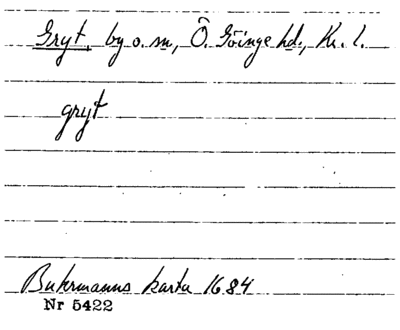 Gryt, by o. sn, Ö. Göinge hd., Kr. l.
gryt
Buhrmanns karta 1684
Nr 5422